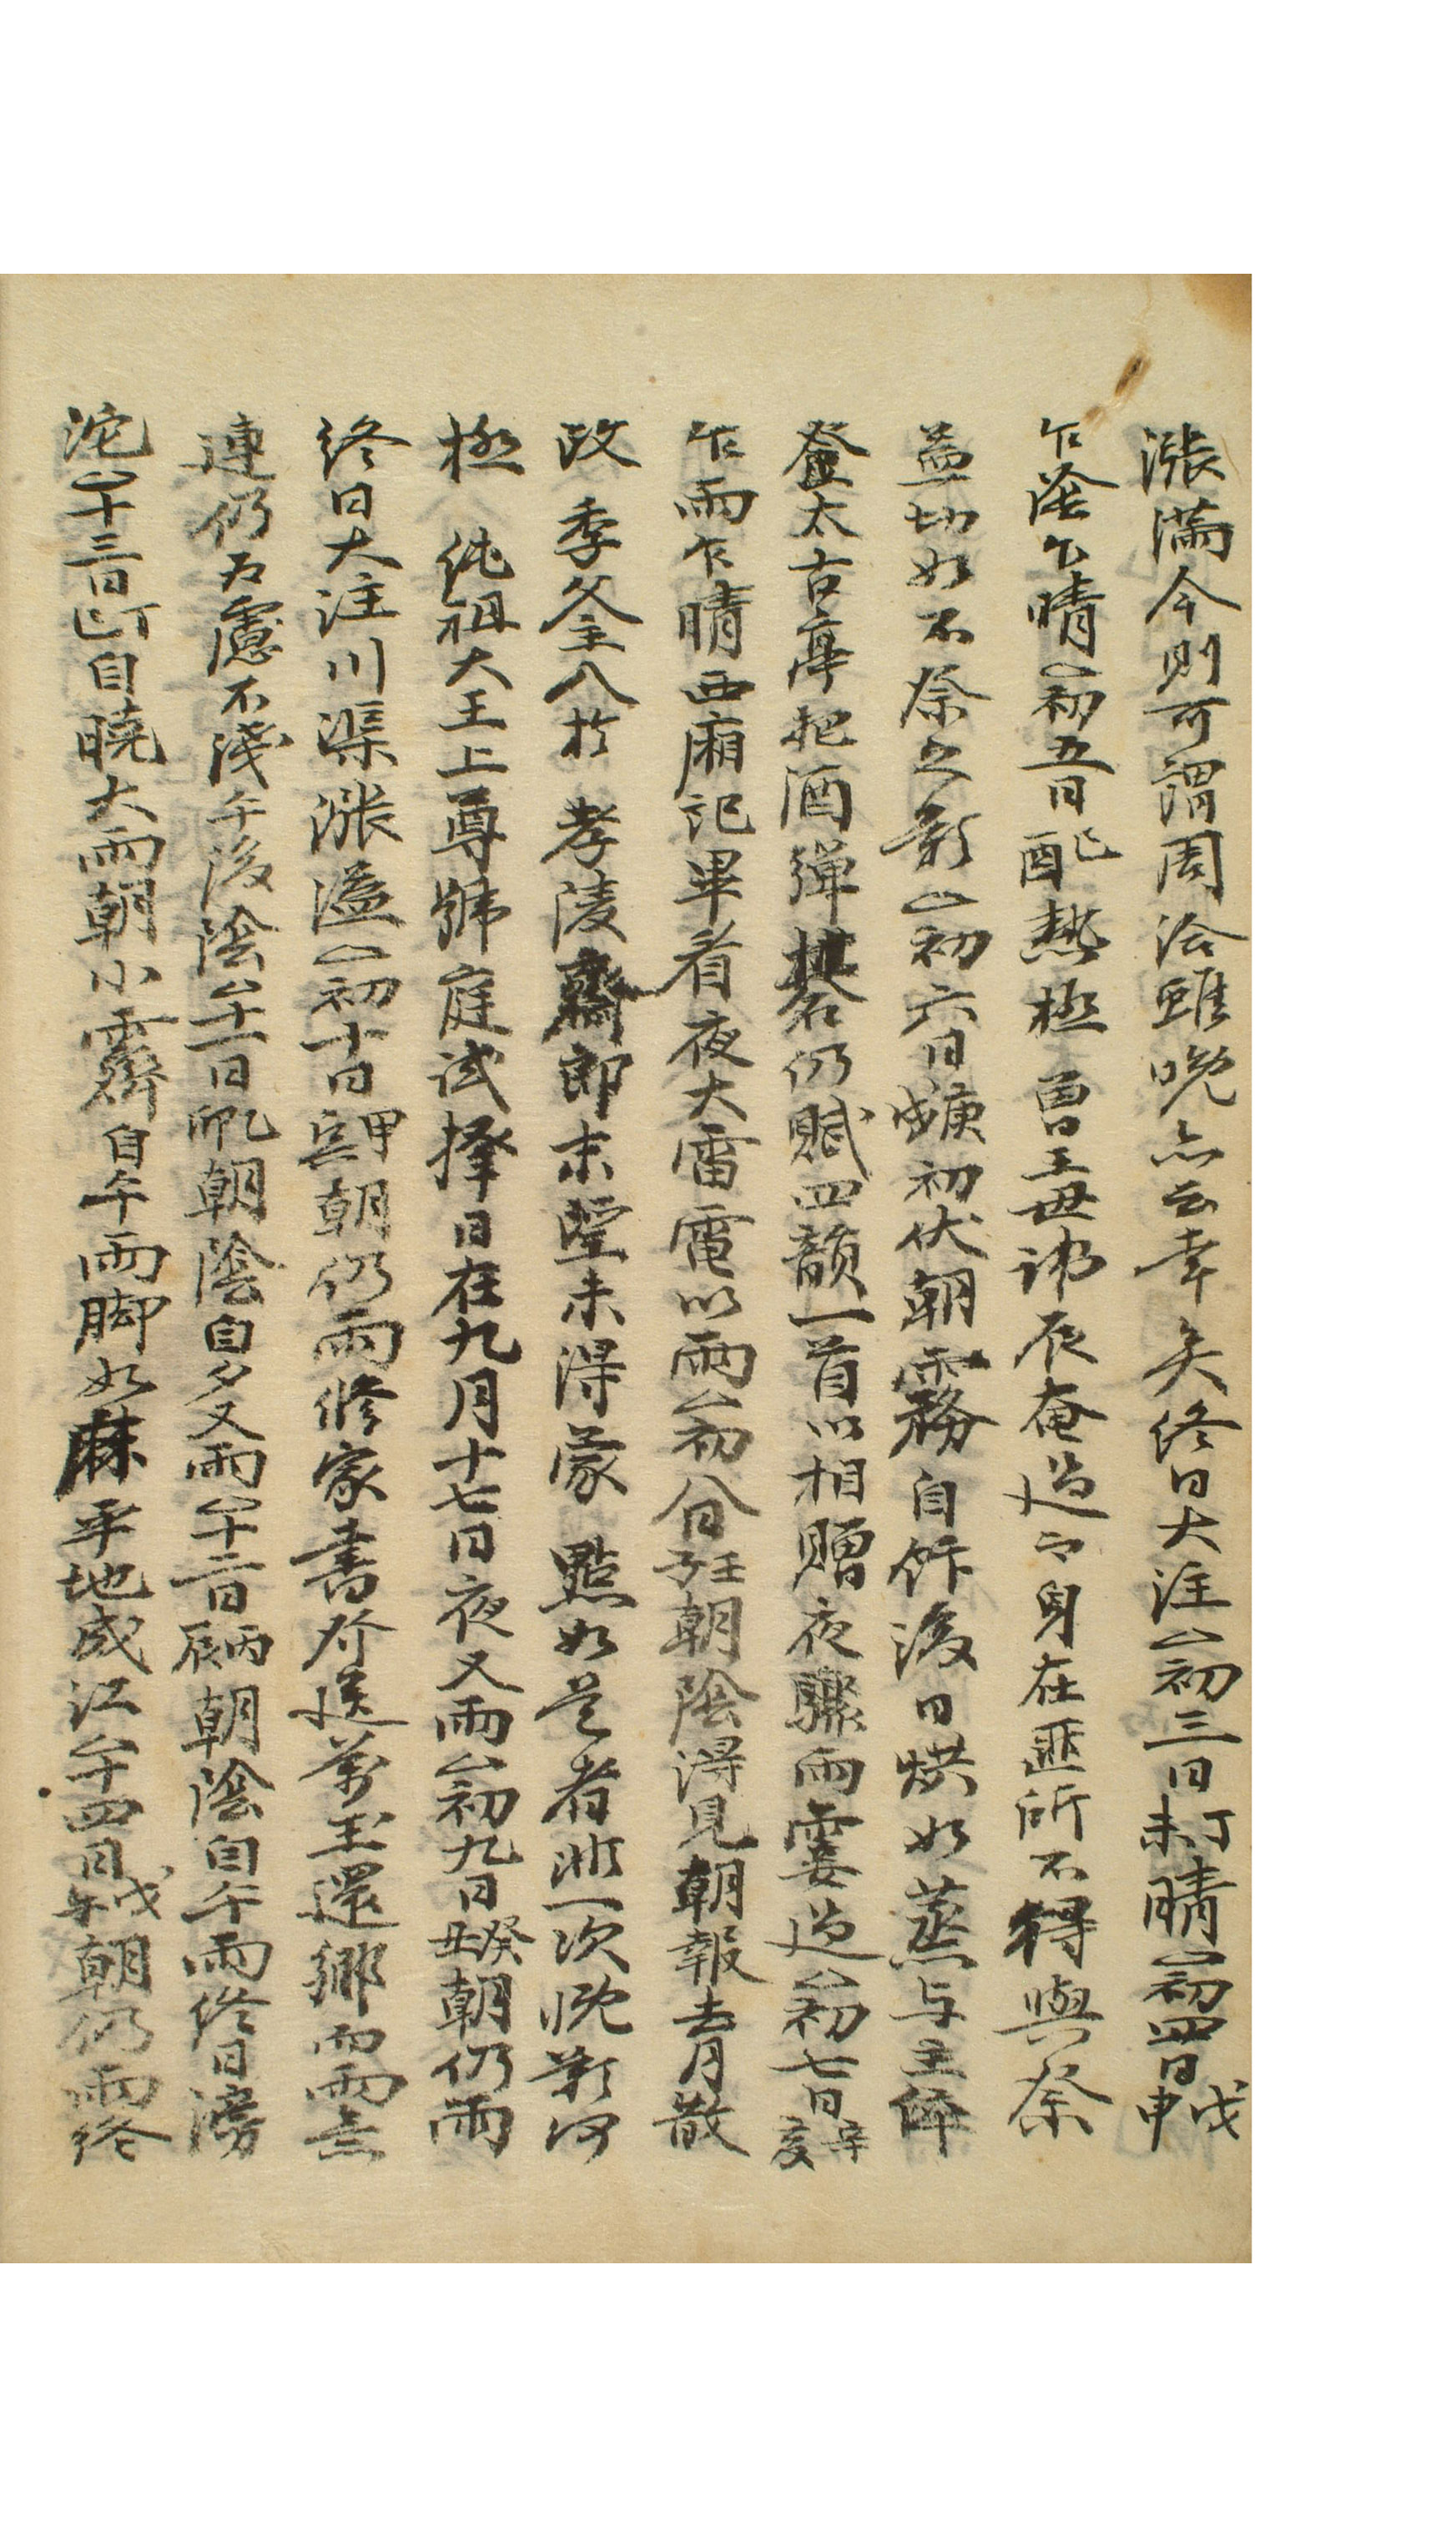 漲滿今則可謂周洽雖晩亦云幸矣終日大注○初三日丁未晴○初四日戊申
乍陰乍晴○初五日己酉熱極曾王母諱辰奄過而身在匪所不得與祭
益切如不祭之歎○初六日庚戌初伏朝霧自飯後日烘如蒸与主倅
登太古亭把酒彈碁仍賦四韻一首以相贈夜驟雨霎過○初七日辛亥
乍雨乍晴西廂記畢看夜大雷電以雨○初八日壬子朝陰得見朝報去月散
政 季父主入於 孝陵齋郞末望未得蒙 點如是者非一次慨歎何
極 純祖大王上尊號庭試擇日在九月十七日夜又雨○初九日癸丑朝仍雨
終日大注川渠漲溢○初十日甲寅朝仍雨修家書付送萬玉還鄕而雨意
連仍爲慮不淺午後陰○十一日乙卯朝陰自夕又雨○十二日丙辰朝陰自午雨終日滂
沱○十三日丁巳自曉大雨朝小霽自午雨脚如麻平地成江○十四日戊午朝仍雨終